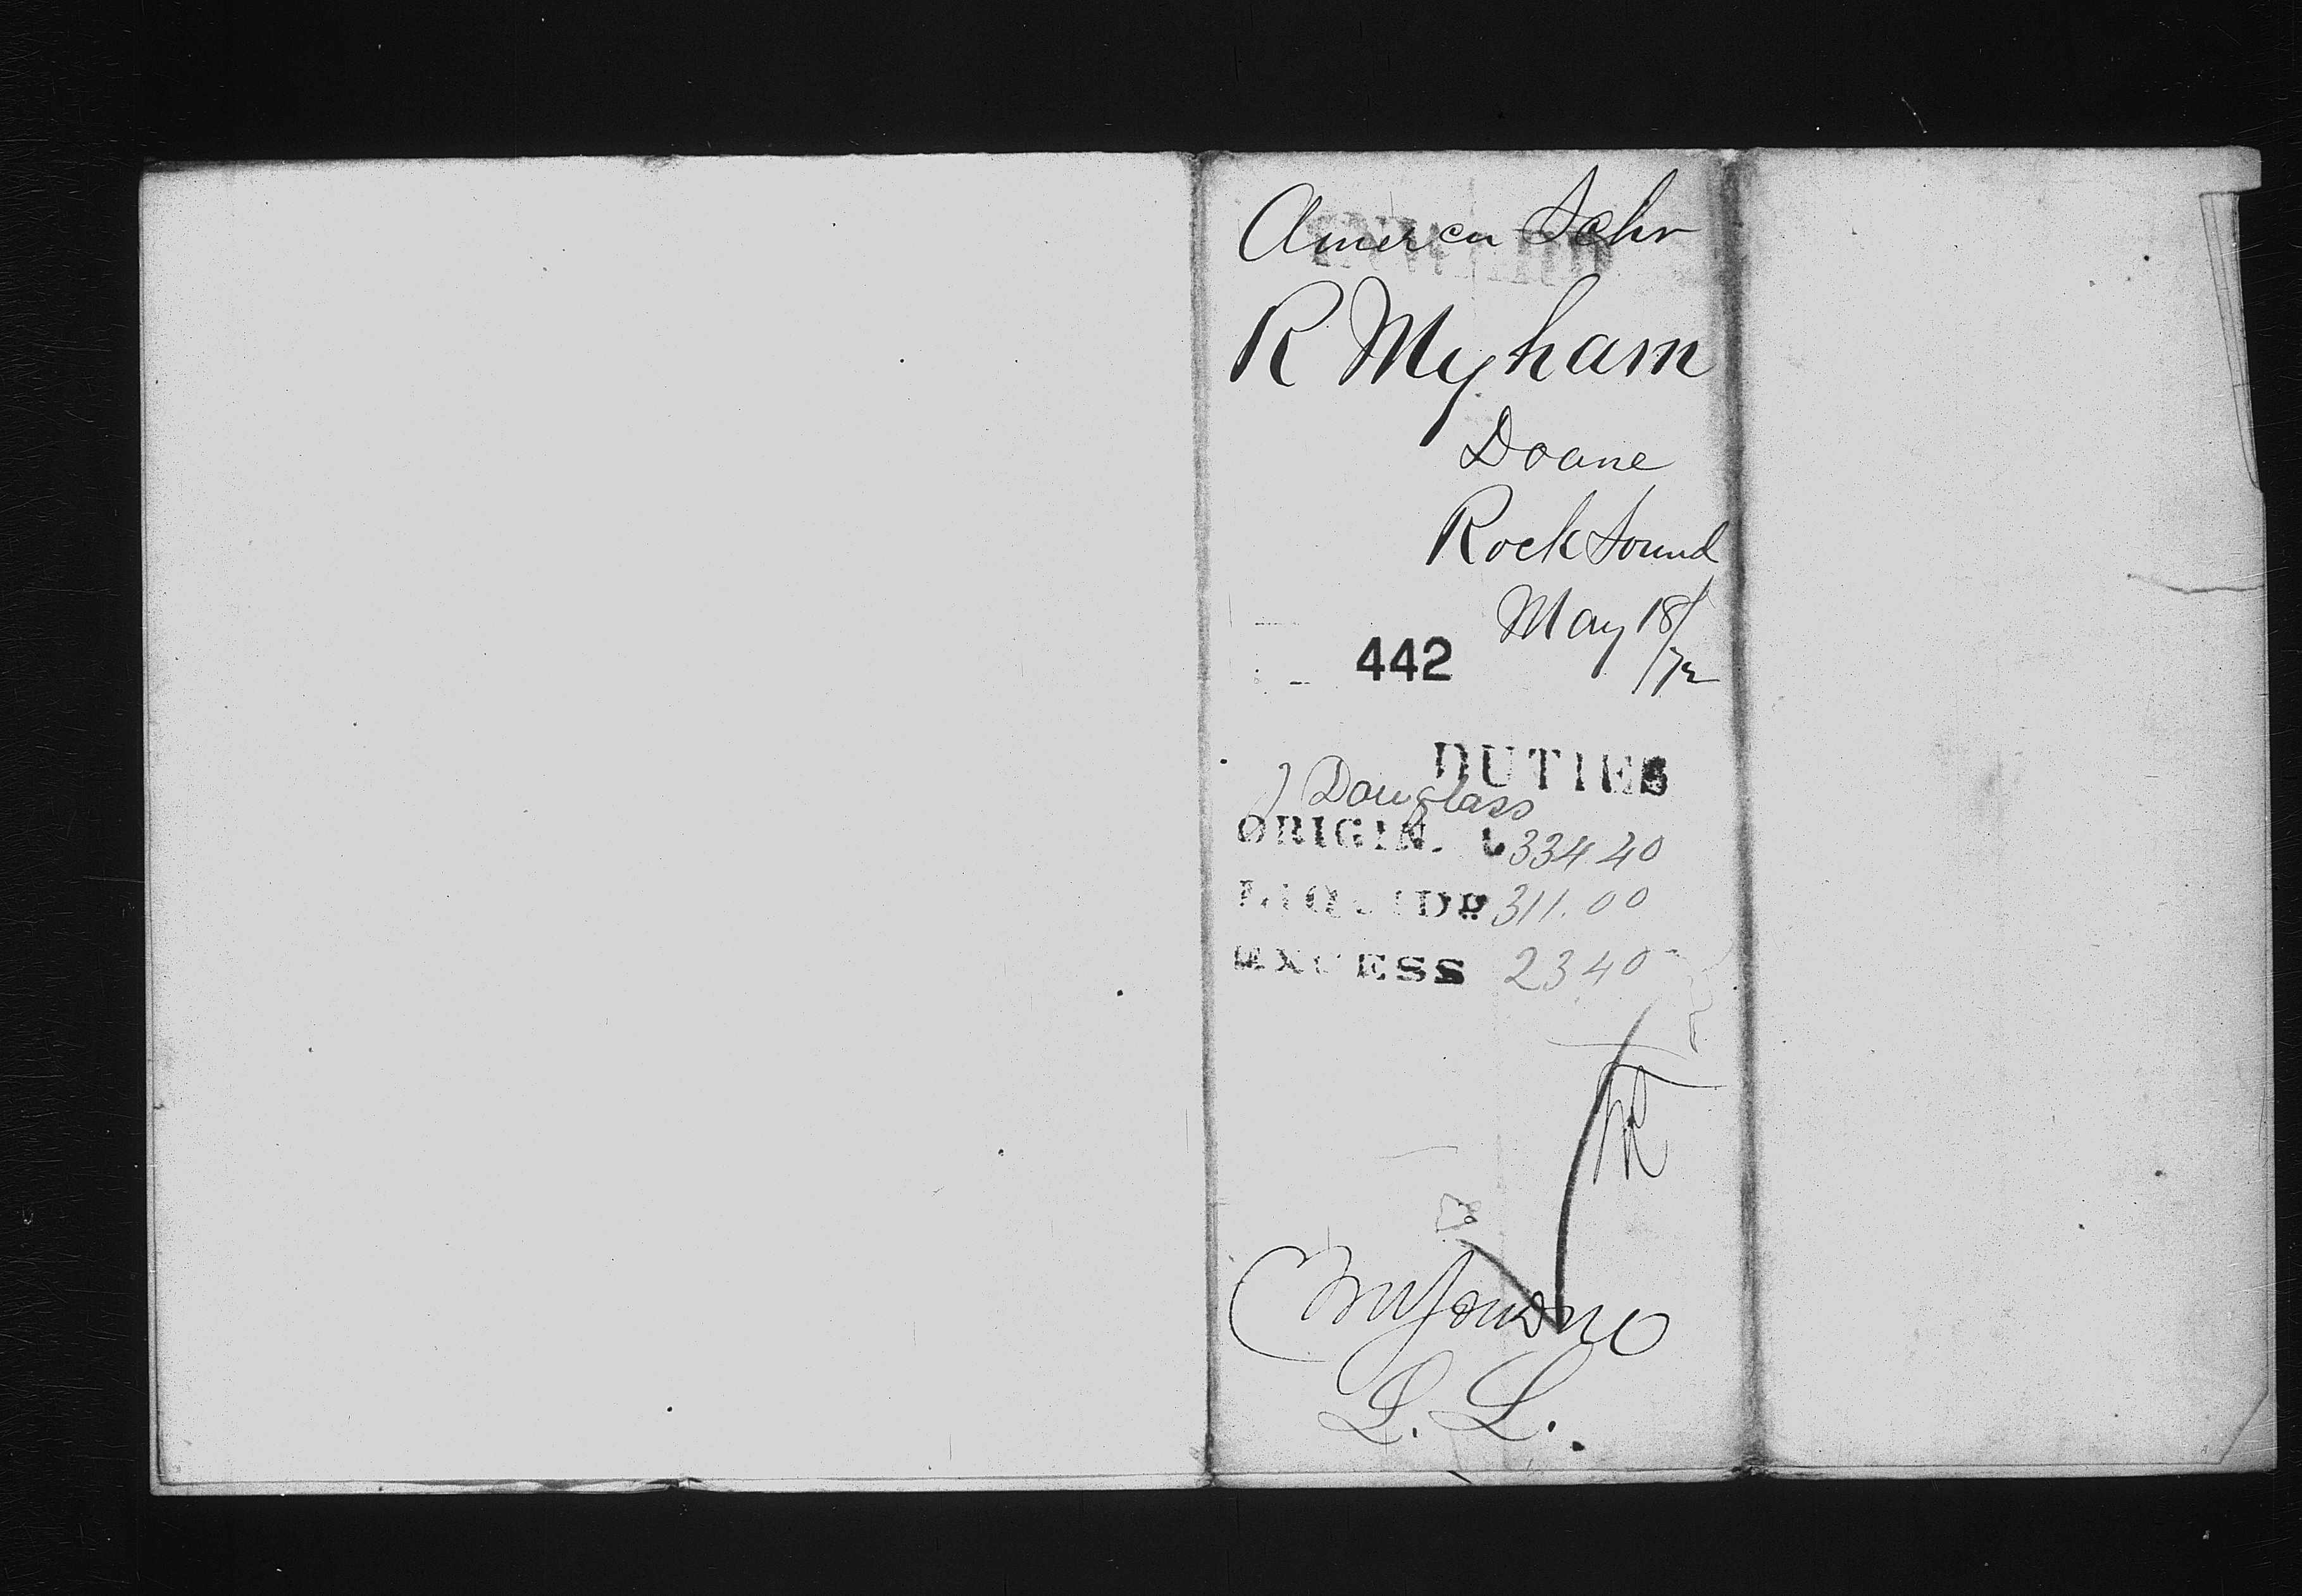 Amercn Schr
R Myham
Doane
Rock Sound
May 18/72
442
DUTIES
J Douglass
ORIGIN. 334.40
LIQUID 311.00
EXCESS 23.40
L. L.